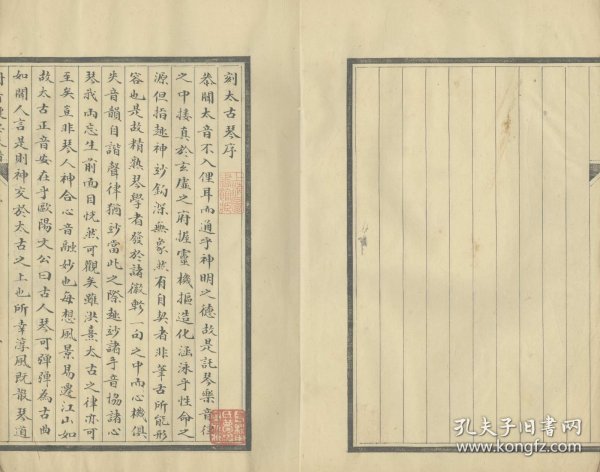 刻太古琴序
恭聞太音不入俚耳而通乎神明之德故是託琴樂音律
之中接真於玄虛之府握靈機摳造化涵泳乎性命之
源但指趣神妙鈎深無象然有自契者非筆舌所能形
容也是故精熟琴學者發於諸徽軫一句之中而心機俱
失音韻自諧聲律猶妙當此之際趣妙諸手音協諸心
琴我兩忘生前面目恍然可觀矣雖洪熹太古之律亦可
至矣豈非琴人神合心音融妙也每想風景易遷江山如
故太古正音安在乎歐陽文公曰古人琴可彈彈為古曲
如關人言是則神交於太古之上也所幸淳風既散琴道
孔夫子旧書网
www.kongfz.com